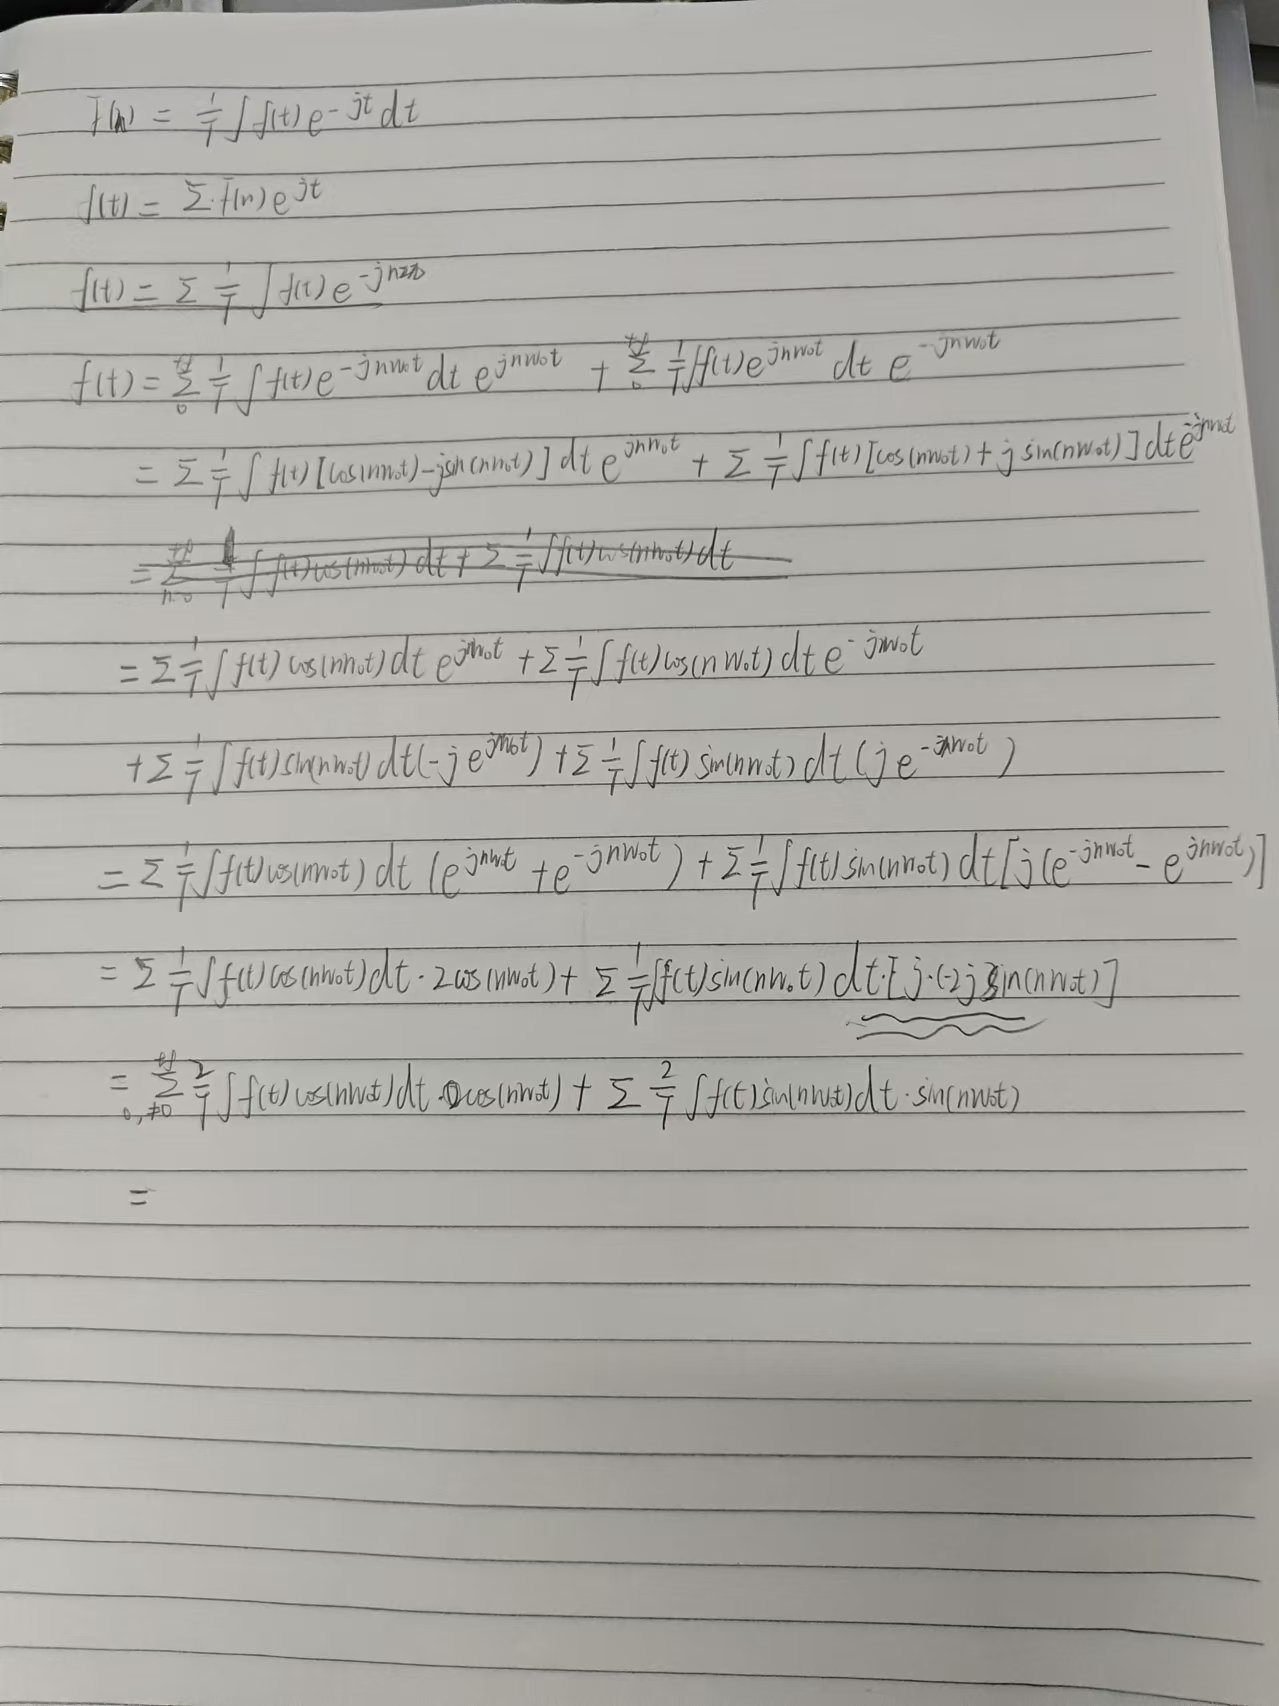 F(n) = 1/T ∫ f(t) e^{-jt} dt
f(t) = Σ F(n) e^{jt}
f(t) = Σ 1/T ∫ f(t) e
f(t) = Σ 1/T ∫ f(t) e^{-jnw₀t} dt e^{jnw₀t} + Σ 1/T ∫ f(t) e^{jnw₀t} dt e^{-jnw₀t}
= Σ 1/T ∫ f(t) [cos(nw₀t) - jsin(nw₀t)] dt e^{jnw₀t} + Σ 1/T ∫ f(t) [cos(nw₀t) + j sin(nw₀t)] dt e^{-jnw₀t}
= Σ 1/T ∫ f(t) cos(nw₀t) dt + Σ 1/T ∫ f(t) cos(nw₀t) dt
= Σ 1/T ∫ f(t) cos(nw₀t) dt e^{jnw₀t} + Σ 1/T ∫ f(t) cos(nw₀t) dt e^{-jnw₀t}
+ Σ 1/T ∫ f(t) sin(nw₀t) dt (-j e^{jnw₀t}) + Σ 1/T ∫ f(t) sin(nw₀t) dt (j e^{-jnw₀t})
= Σ 1/T ∫ f(t) cos(nw₀t) dt (e^{jnw₀t} + e^{-jnw₀t}) + Σ 1/T ∫ f(t) sin(nw₀t) dt [j(e^{-jnw₀t} - e^{jnw₀t})]
= Σ 1/T ∫ f(t) cos(nw₀t) dt · 2cos(nw₀t) + Σ 1/T ∫ f(t) sin(nw₀t) dt · [j·(-2)j sin(nw₀t)]
= Σ 2/T ∫ f(t) cos(nw₀t) dt · cos(nw₀t) + Σ 2/T ∫ f(t) sin(nw₀t) dt · sin(nw₀t)
=